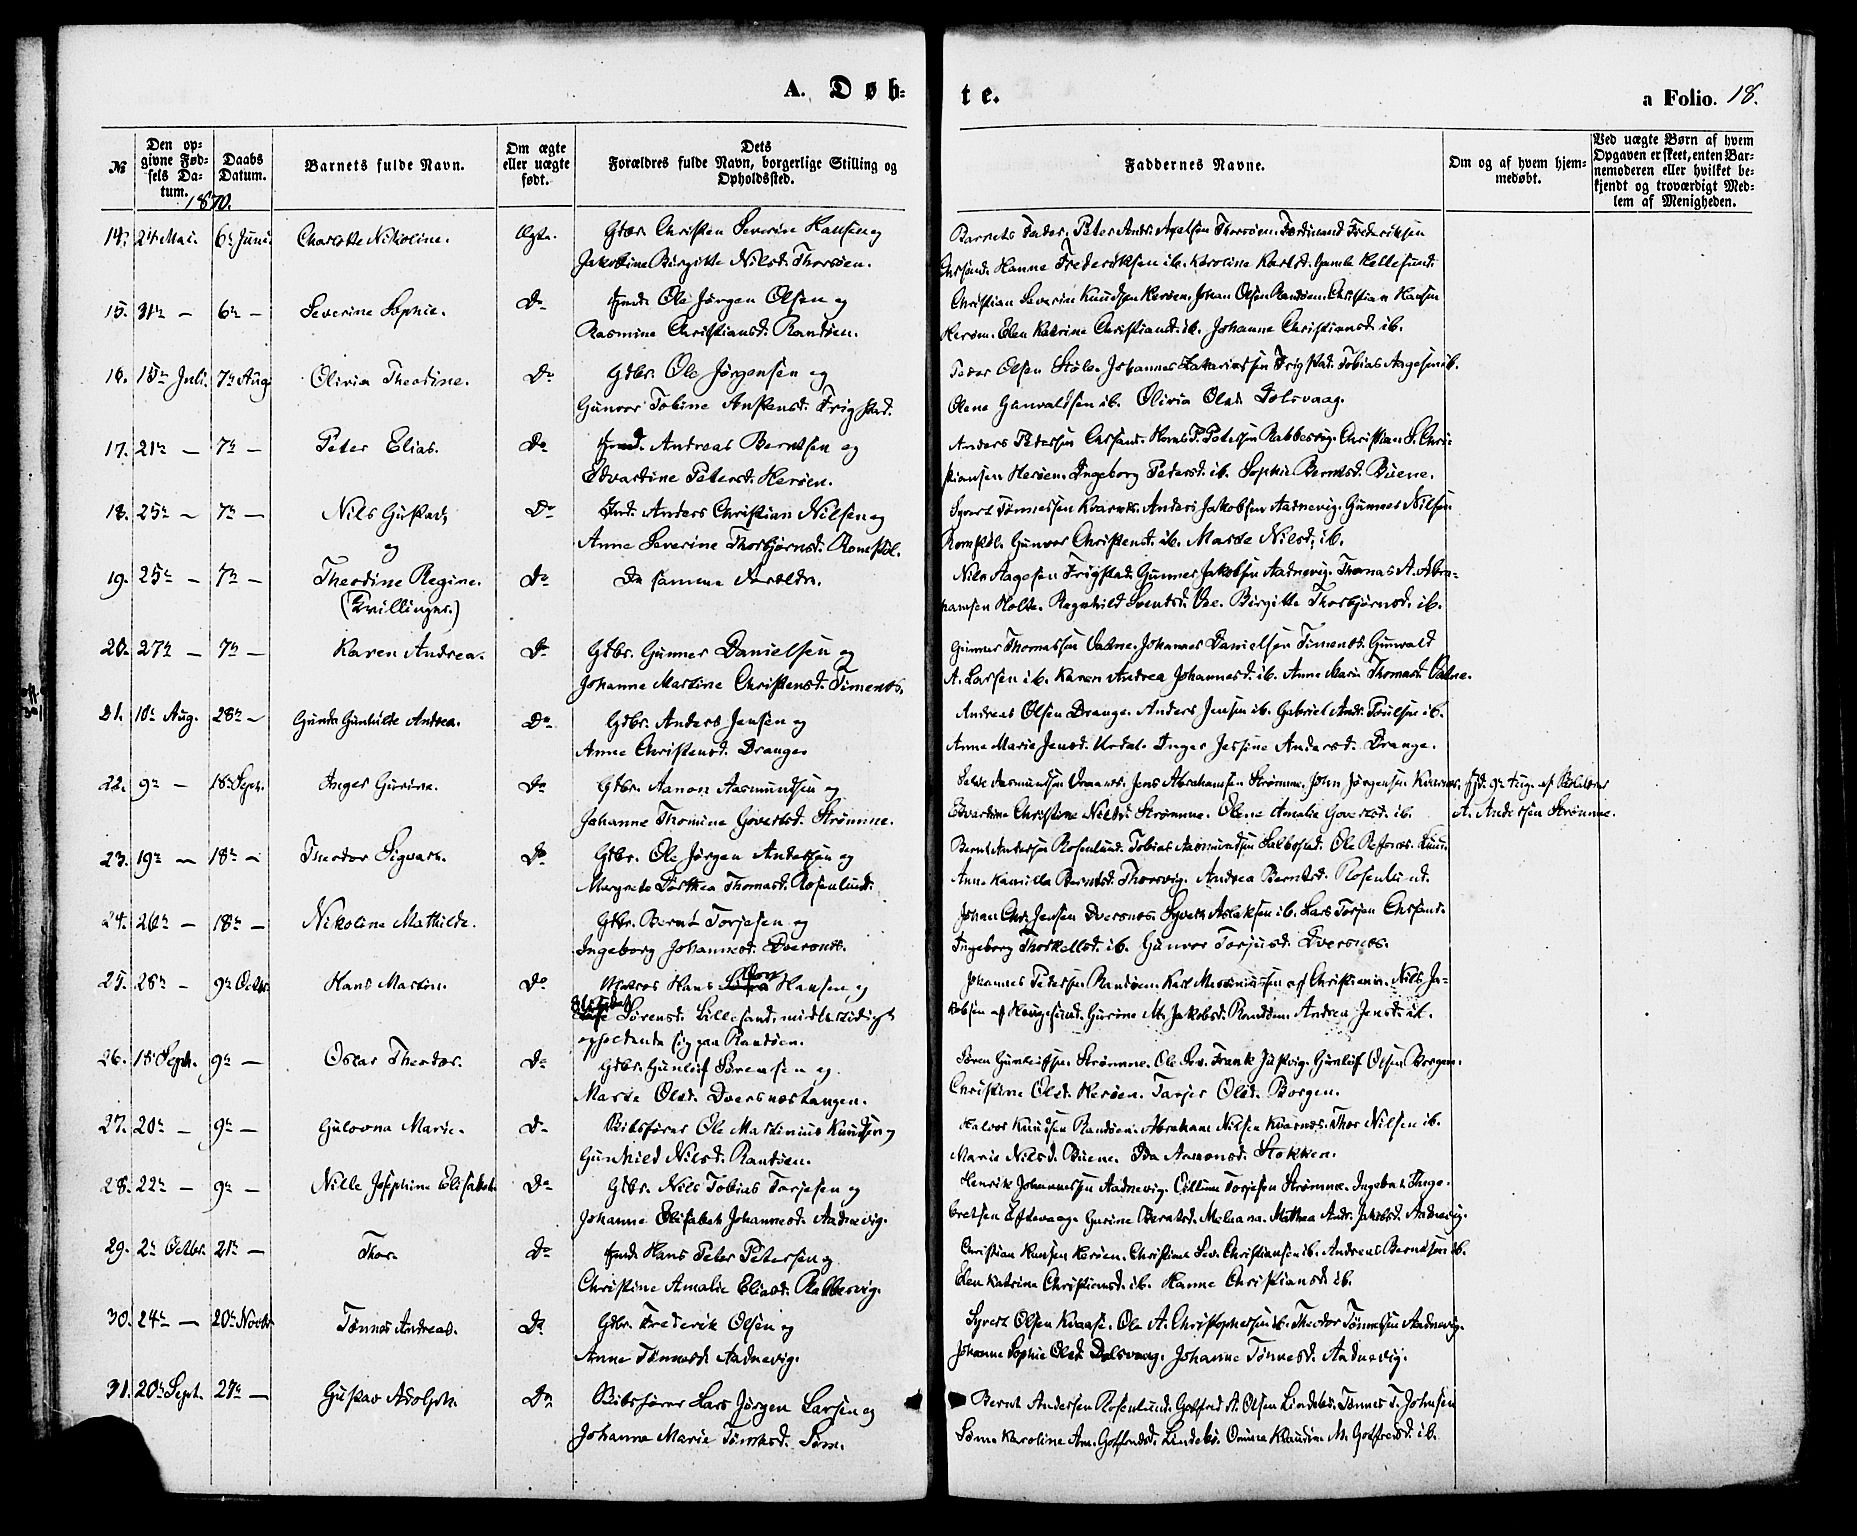 A. Døb-
te.
a Folio. 18.
№
Den op-
givne Fød-
sels Da-
tum.
1870.
Daabs
Datum.
Barnets fulde Navn.
Om ægte
eller uægte
født.
Dets
Forældres fulde Navn, borgerlige Stilling og
Opholdssted.
Faddernes Navne.
Om og af hvem hjem-
medøbt.
Ved uægte Børn af hvem
Opgaven er skeet, enten Bar-
nemoderen eller hvilket be-
kjendt og troværdigt Med-
lem af Menigheden.
14. 24 Mai. 6te Juni. Charlotte Nikoline. Ægte. Christen Severin Hansen og
Jakobine Birgitte Nilsd. Thorsøen.
Barnets Fader. Peter Andr. Axelsen Thorsøen. Ferdinand Frederiksen
Hanne Frederiksen ib. Karoline Karlsd. Gamle Hellesund.
15. 31te — 6te — Severine Sophie. Do Ole Jørgen Olsen og
Rasmine Christiansd. Randøen.
Christian Severin Knudsen Herøen. Johan Olsen Randøen. Christian Hansen
Herøen. Elen Katrine Christiansd. ib. Johanne Christiansd. ib.
16. 15de Juli. 7de Aug. Olivia Theodine. Do Gdbr. Ole Jørgensen og
Gunvor Tobine Austensd. Frigstad.
Peder Olsen Støle. Johannes Zakariassen Frigstad. Tobias Aagesen ib.
Olene Gunvaldsen ib. Olivia Olsd. Dolsvaag.
17. 21de — 7de — Peter Elias. Do Andreas Berntsen og
Edvardine Petersd. Herøen.
Anders Pedersen Chrsand. Hans P. Petersen Rabbesvig. Christian S. Chri-
stiansen Herøen. Ingeborg Petersd. ib. Sophie Berntsd. Buene.
18. 25de — 7de — Nils Gustav, Do Anders Christian Nilsen og
og
Anne Severine Thorbjørnsd. Romstøl.
Syvert Tønnessen Anders Jakobsen Aadnevig. Gunner Nilsen
Romstøl. Gunvor Christensd. ib. Marte Nilsd. ib.
19. 25de — 7de — Theodine Regine. Do De samme Forældre.
(Tvillinger.)
Nils Aagesen Frigstad. Gunner Jakobsen Aadnevig. Thomas A. Abra-
hamsen Holte. Ragnhild Birgitte Thorbjørnsd. ib.
20. 27de — 7de — Karen Andrea. Do Gdbr. Gunner Danielsen og
Johanne Martine Christensd. Timenes.
Gunner Thomassen Johannes Danielsen Timenes. Gunvald
A. Larsen ib. Karen Andrea Johannesd. ib. Anne Marie Thomasd.
21. 10de Aug. 28de — Gunda Gunhilde Andrea. Do Gdbr. Anders Jensen og
Anne Christensd. Drange.
Andreas Olsen Drange. Anders Jensen ib. Gabriel Andr. ib.
Anne Marie Jensd. Inger Jessine Andersd. Drange.
22. 9de — 18de Sept. Inger Gurine. Do Gdbr. Aanon Aasmundsen og
Johanne Thomine Govertsd. Strømme.
Aasmundsen Jens Abrahamsen Strømme. John Jørgensen Kvarnes. Hjd. 9de Aug. af
Edvardine Christine Nilsd. Strømme. Olene Amalie Govertsd. ib. A. Andersen Strømme.
23. 19de — 18de — Theodor Sigvart. Do Gdbr. Ole Jørgen Andersen og
Margrete Dorthea Thomasd. Rosenlund.
Bernt Andersen Rosenlund. Tobias Aasmundsen Ole
Anne Kamilla Berntsd. Thorsvig. Andrea Berntsd. Rosenlund.
24. 26de — 18de — Nikoline Mathilde. Gdbr. Bernt Torjesen og
Ingeborg Johannesd. Dversnes.
Johan Chr. Jensen Dversnes. Syvert Aslaksen ib. Lars Torjesen Chrsand.
Ingeborg Thorkellsd. ib. Gunvor Torjusd. Dversnes.
25. 28de — 9de Octbr. Hans Martin. Do Matros Hans Hansen og
Sørensd. Lillesand, midlertidigt
opholdende sig paa Randøen.
Johannes Pedersen Randøen. Karl af Christiania. Nils Ja-
kobsen af Haugesund. Gurine M. Jakobsd. Randøen. Andrea Jensd. ib.
26. 18de Sept. 9de — Oscar Theodor. Do Gdbr. Gunlef Sørensen og
Marte Olsd. Dversnestangen.
Søren Gunlefsen Strømme. Ole Sev. Frank Justvig. Gunlef Olsen Borgen.
Christine Olsd. Herøen. Torjer Olsd. Borgen.
27. 20de — 9de — Gulovna Marie. Do Ole Martinius Knudsen og
Gunhild Nilsd. Randøen.
Halvor Knudsen Randøen. Abraham Nilsen Kvarnes. Thor Nilsen ib.
Marie Nilsd. Buene. Ida Aamonsd. Stokken.
28. 22de — 9de — Nille Josephine Elisabeth. Do Gdbr. Nils Tobias Torjesen og
Johanne Elisabeth Johannesd. Aadnevig.
Henrik Johannessen Aadnevig. Torjesen Strømme. Ingebret Inge-
bretsen Eftevaag. Gurine Berntsd. Mathea Andr. Jakobsd. Aadnevig.
29. 2de Octbr. 21de — Thor. Do Hans Peter Petersen og
Christine Amalie Eliasd. Rabbesvig.
Christian Hansen Herøen. Christian Sev. Christiansen ib. Andreas Berntsen ib.
Elen Katrine Christiansd. ib. Hanne Christiansd. ib.
30. 24de — 20de Novbr. Tønnes Andreas. Do Gdbr. Frederik Olsen og
Anne Tønnesd. Aadnevig.
Syvert Olsen Kvaase. Ole A. Christophersen ib. Theodor Tønnessen Aadnevig.
Johanne Sophie Olsd. Dolsvaag. Johanne Tønnesd. Aadnevig.
31. 20de Sept. 27de — Gustav Adolph. Do Lars Jørgen Larsen og
Johanne Marie Tønnesd. Søm.
Bernt Andersen Rosenlund. Gotfred A. Olsen Lindebø. Tønnes T. Johnsen
Søm. Karoline Am. Gotfredsd. Lindebø. M. Gotfredsd. ib.